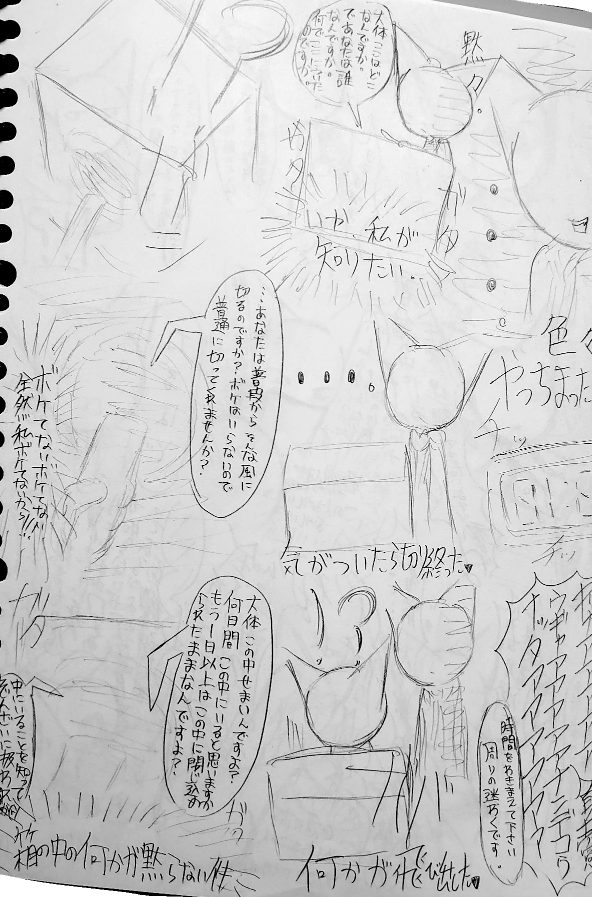 黙々
大体ここはどこ
なんですか。
であなたは誰
なんですか。
何でここにいた
のですか。
ガタ
ガタ
いや、私が
知りたい‥
色々
やっちまった
‥‥。
チッ
チッ
気がついたら切り終った♥
‥あなたは普段からそんな風に
切るのですか?ボケはいらないので
普通に切ってくれませんか?
ボケてないボケてない
全然私ボケてないから!!
ナンデコウ
ナッタアアアアアア
時間をわきまえて下さい
周りの迷わくです。
!?
何かが飛び出した♥
大体この中せまいんですよ?
何日間この中にいると思いますか
もう1日以上はこの中に閉じ込め
られたままなんですよ?
ガタ
ガタ
中にいることを知って
箱の中の何かが黙らない件‥